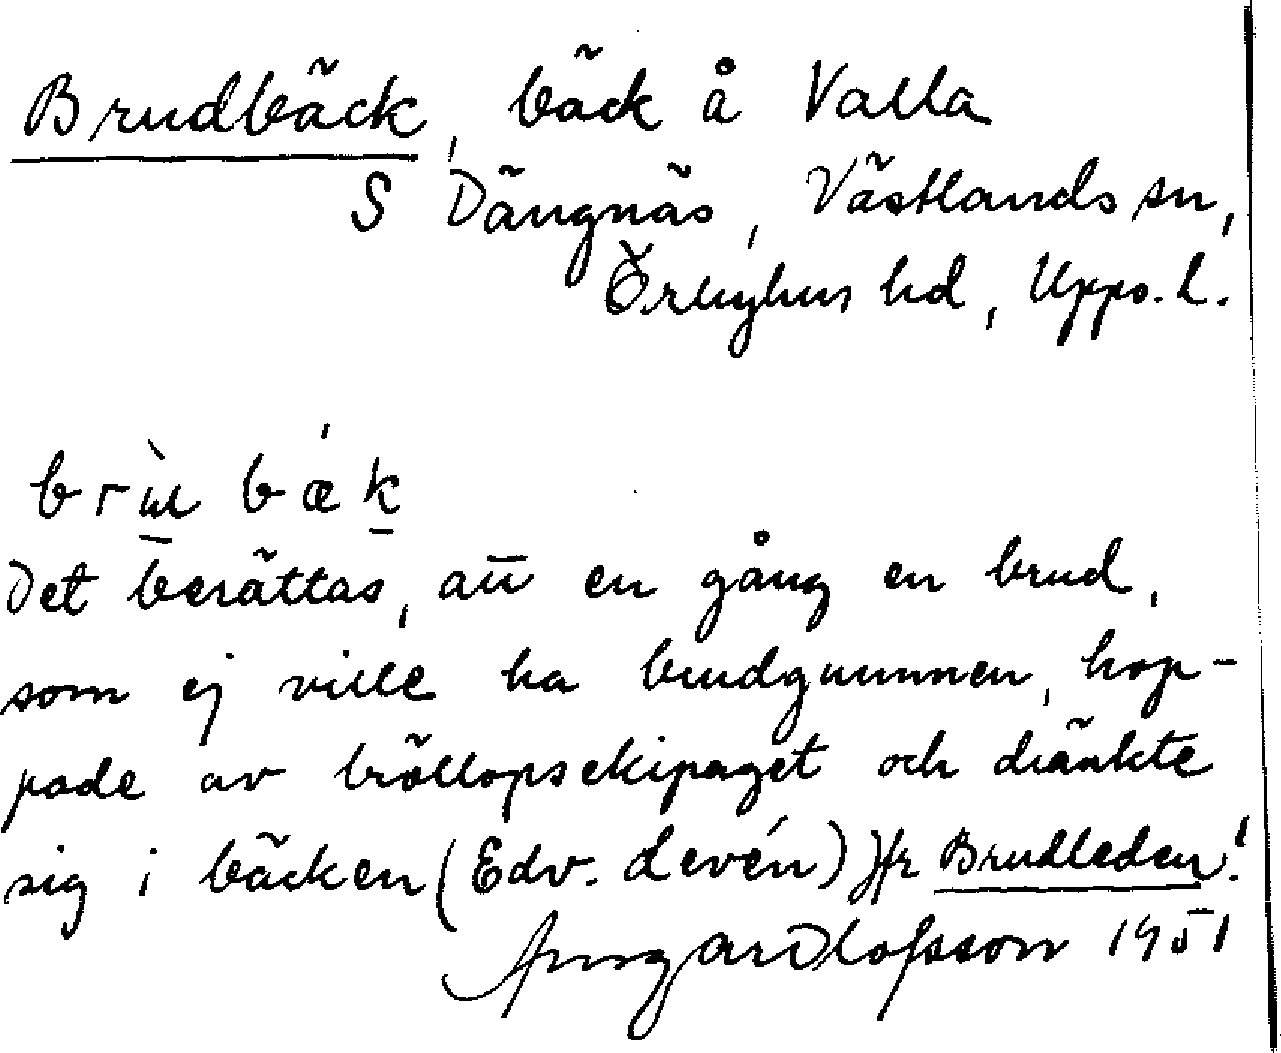 Brudbäck, bäck å Valla
S Dängnäs, Västlands sn,
Örbyhus hd, Upps. l.
brʉ̀bǽk
Det berättas, att en gång en brud,
som ej ville ha brudgummen, hop-
pade av bröllopsekipaget och dränkte
sig i bäcken (Edv. Levén) Jfr Brudleden!
Olofsson 1951